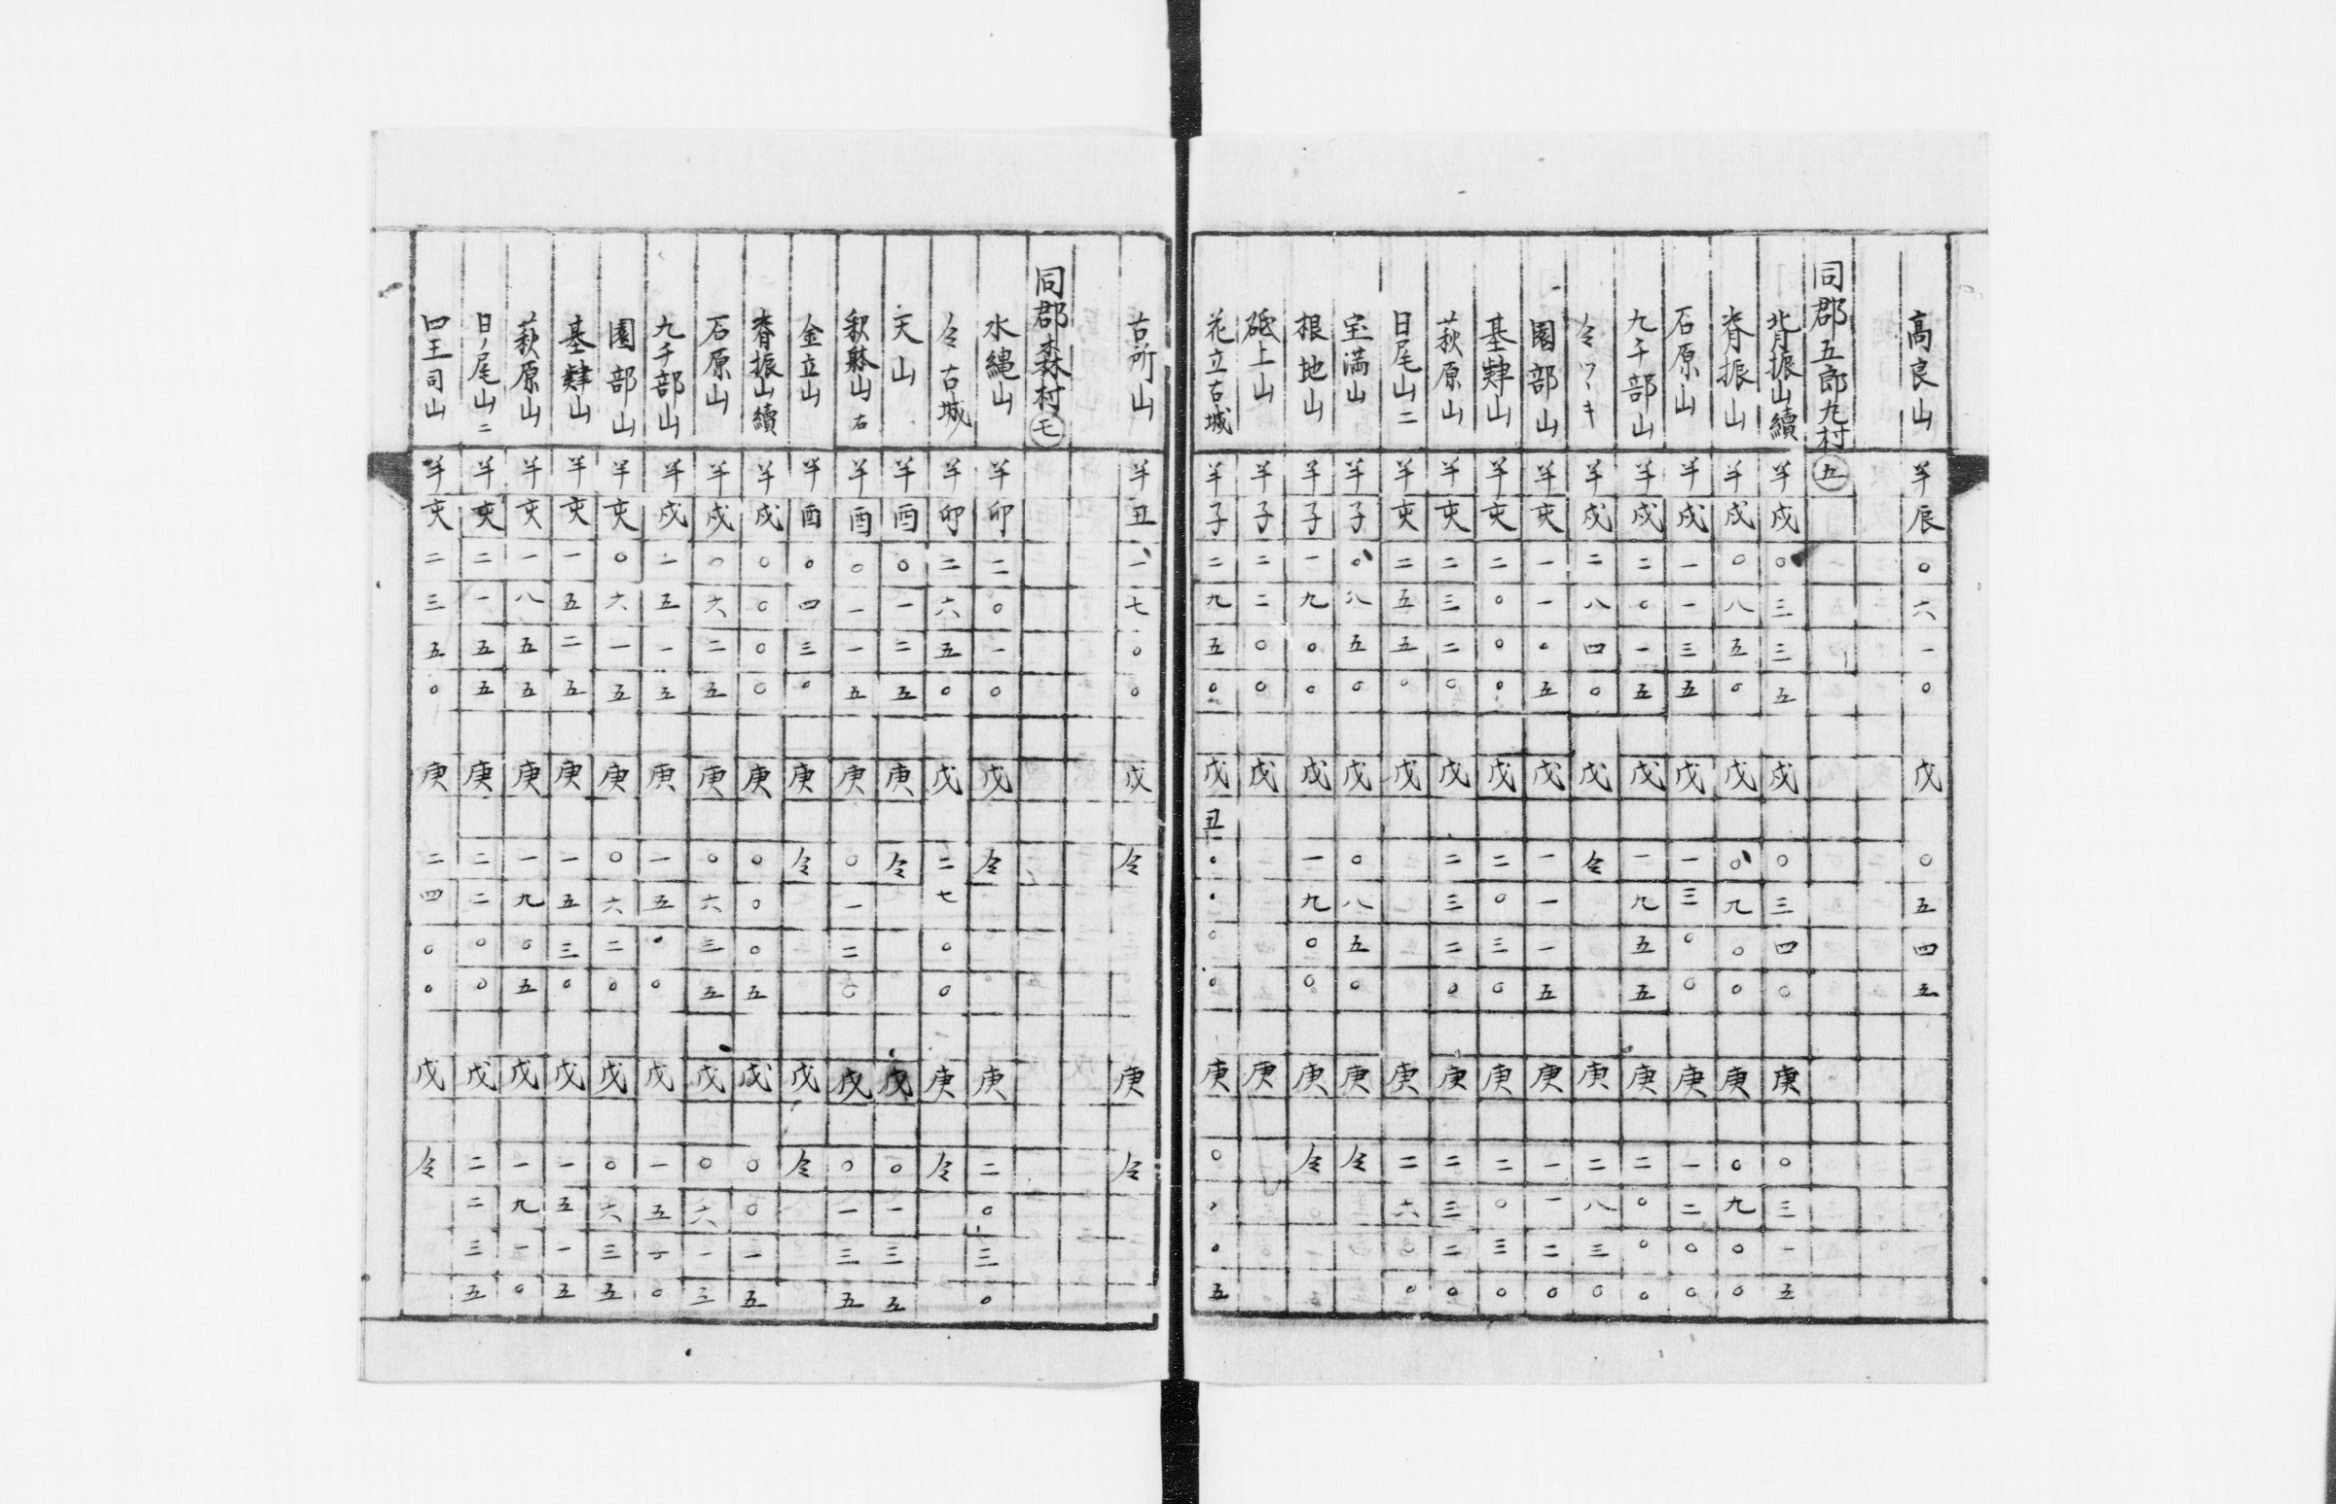 高良山 半辰〇六一〇 戊 〇五四五
同郡五郎丸村 五
背振山續 半戌〇三三五 戊 〇三四〇 庚 〇三一五
脊振山 半戌〇八五〇 戊 〇九〇〇 庚 〇九〇〇
石原山 半戌一一三五 戊 一三〇〇 庚 一二〇〇
九千部山 半戌二〇一五 戊 一九五五 庚 二〇〇〇
仝ワキ 半戌二八四〇 戊 仝 庚 二八三〇
園部山 半亥一一〇五 戊 一一一五 庚 一一二〇
基肄山 半亥二〇〇〇 戊 二〇三〇 庚 二〇三〇
萩原山 半亥二三二〇 戊 二三二〇 庚 二三二〇
日尾山二 半亥二五五〇 戊 庚 二六〇〇
宝満山 半子〇八五〇 戊 〇八五〇 庚 仝
根地山 半子一九〇〇 戊 一九〇〇 庚 仝
砥上山 半子二二〇〇 戊 庚
花立古城 半子二九五〇 戊丑〇〇〇〇 庚 〇〇〇五
古所山 半丑一七〇〇 戊 仝 庚 仝
同郡森村 モ
水縄山 半卯二〇一〇 戊 仝 庚 二〇三〇
仝古城 半卯二六五〇 戊 二七〇〇 庚 仝
天山 半酉〇一二五 庚 仝 戊 〇一三五
山 右 半酉〇一一五 庚 〇一二〇 戊 〇一三五
金立山 半酉〇四三〇 庚 仝 戊 仝
脊振山續 半戌〇〇〇〇 庚 〇〇〇五 戊 〇〇一五
石原山 半戌〇六二五 庚 〇六三五 戊 〇六一五
九千部山 半戌一五一五 庚 一五〇〇 戊 一五一〇
園部山 半亥〇六一五 庚 〇六二〇 戊 〇六三五
基肄山 半亥一五二五 庚 一五三〇 戊 一五一五
萩原山 半亥一八五五 庚 一九〇五 戊 一九一〇
日ノ尾山二 半亥二一五五 庚 二二〇〇 戊 二二三五
四王司山 半亥二三五〇 庚 二四〇〇 戊 仝